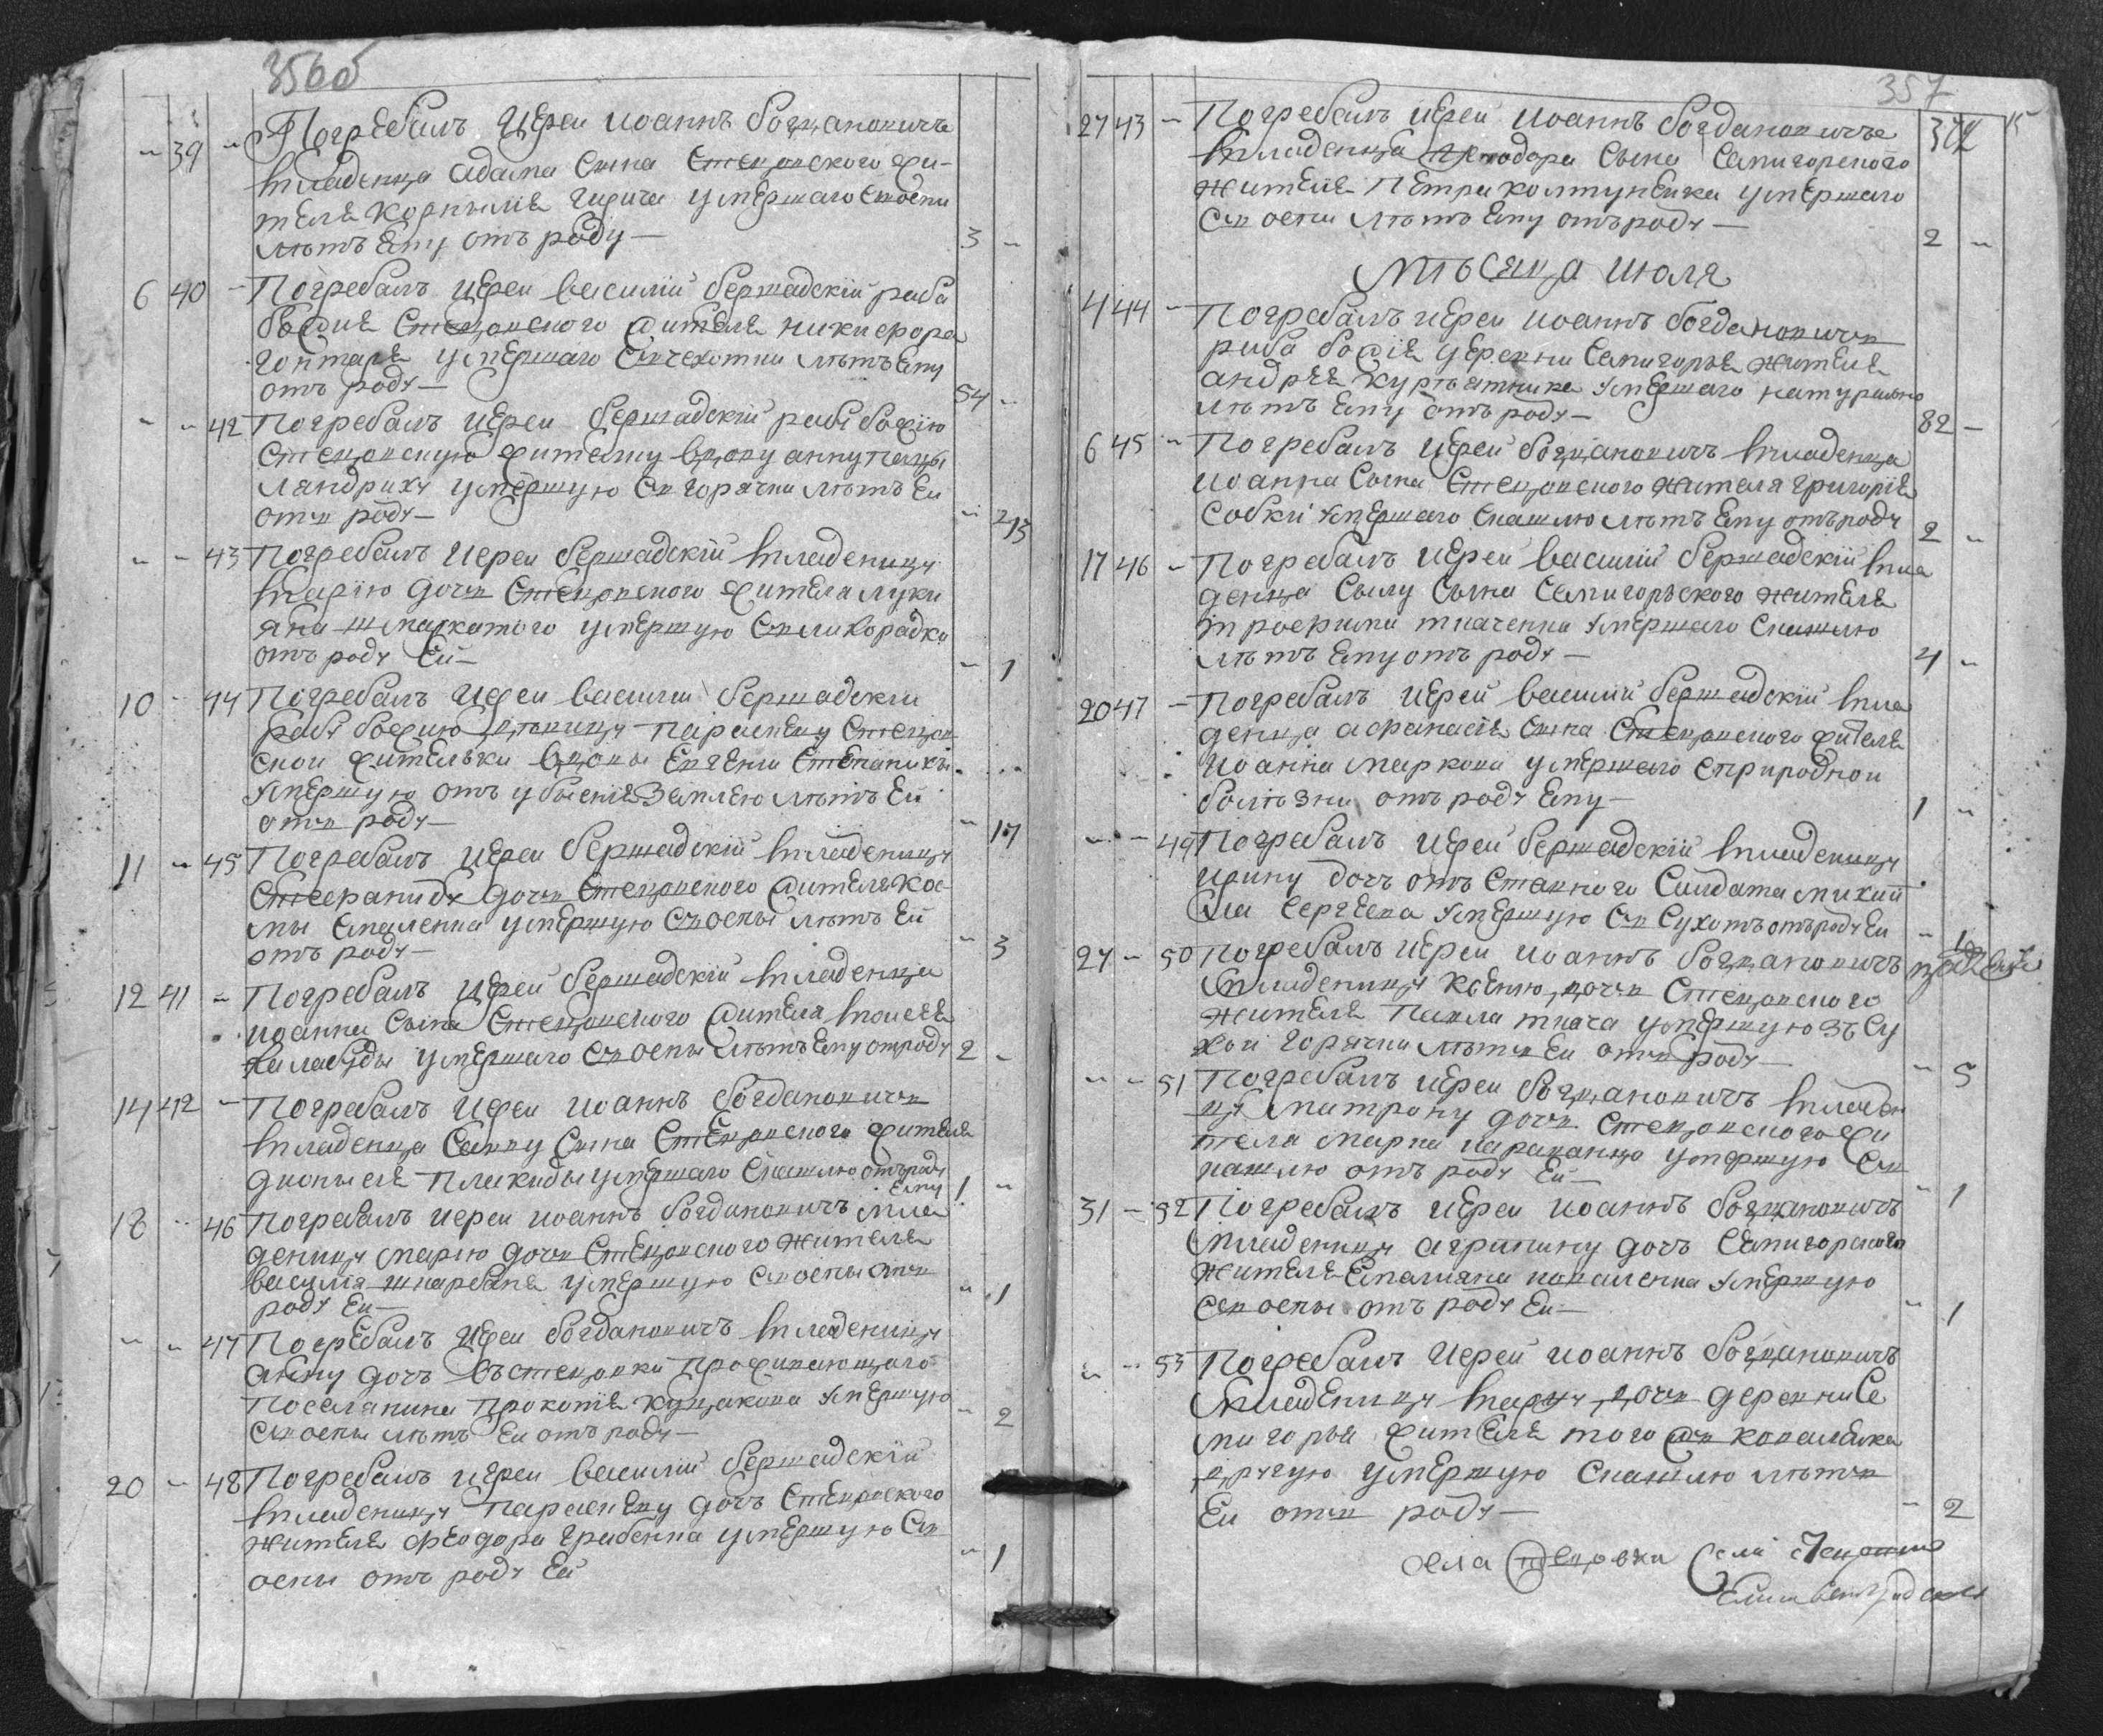 356об
„ 39 „ Погребалъ Иерей иоаннъ богдановичъ
младенца адама сына стецовского жи-
теля корнилия гирича умершаго своспи
лѣтъ ему отъ роду — 3 „
6 40 — Погребалъ иерей василий бершадский раба
божия стецовского жителя никифора
гонтаря умершаго счехотни лѣтъ ему
отъ роду — 54 „
„ „ 42 Погребалъ иерей бершадский рабу божию
стецовскую жителку вдову анну
ляндриху умершую съ горячки лѣтъ ей
отъ роду —
„ „ 43 Погребалъ иерей бершадский младеницу
марию дочъ стецовского жителя луки
яна шмаркатого умершую слихорадки
отъ роду ей — „ 1
10 „ 44 Погребалъ иерей василий бершадский
рабу божию дѣвицу параскеву стецов
ской жителки вдовы евгении степанихи
умершую отъ убиения землею лѣтъ ей
отъ роду — „ 17
11 „ 45 Погребалъ иерей бершадский младеницу
стефаниду дочъ стецовского жителя кос
мы смаленка умершую съ оспы лѣтъ ей
отъ роду — „ 3
12 41 „ Погребалъ иерей бершадский младенца
иоанна сына стецовского жителя моисея
халабуды умершаго съ оспы лѣтъ ему отроду 2 „
14 42 — Погребалъ иерей иоаннъ богдановичъ
младенца савву сына стецовского жителя
дионисия плакиды умершаго скашлю отъ роду
ему 1 „
18 „ 46 Погребалъ иерей иоаннъ богдановичъ мла
деницу марию дочъ стецовского жителя
василя шкарбана умершую своспы отъ
роду ей — „ 1
„ „ 47 Погребалъ иерей богдановичъ младеницу
анну дочъ въ стецовки проживающаго
поселянина прокопия кущакова умершую
съ оспы лѣтъ ей отъ роду — „ 2
20 „ 48 Погребалъ иерей василий бершадский
младеницу параскеву дочъ стецовского
жителя феодора грабенка умершую съ
оспы отъ роду ей „ 1
357
15
27 43 — Погребалъ иерей иоаннъ богдановичъ
младенца феодора сына семигорского
жителя петра колтуненка умершаго
съ оспи лѣтъ ему отъ роду — 2 „
мѣсяца июля
4 44 — Погребалъ иерей иоаннъ богдановичъ
раба божия деревни семигорья жителя
андрея курпятника умершаго натурално
лѣтъ ему отъ роду — 82 —
6 45 „ Погребалъ иерей богдановичъ младенца
иоанна сына стецовского жителя григория
собки умершаго скашлю лѣтъ ему отъ роду 2 „
17 46 — Погребалъ иерей василий бершадский мла
денца силу сына семигорского жителя
трофима ткаченка умершаго скашлю
лѣтъ ему отъ роду — 4 „
20 47 — Погребалъ иерей василий бершадский мла
денца афанасия сына стецовского жителя
иоанна маркова умершаго сприродной
болѣзни отъ роду ему — 1 „
„ „ 49 Погребалъ иерей бершадский младеницу
ирину дочъ отъставного салдата михай
ла сергеева умершую съ сухотъ отъ роду ей „ 1
27 — 50 Погребалъ иерей иоаннъ богдановичъ
младеницу ксению дочъ стецовского
жителя павла ткача умершую зъ су
хой горячки лѣтъ ей отъ роду — „ 5
„ „ 51 Погребалъ иерей богдановичъ младени
цу матрону дочъ стецовского жи
теля марка караванца умершую съ
кашлю отъ роду ей — „ 1
31 — 52 Погребалъ иерей иоаннъ богдановичъ
младеницу агрипину дочъ семигорского
жителя емелияна коваленка умершую
съ оспы отъ роду ей — „ 1
„ „ 53 Погребалъ иерей иоаннъ богдановичъ
младеницу марию дочъ деревни се
мигорья жителя того жъ коваленка
другую умершую скашлю лѣтъ
ей отъ роду — „ 2
села Стецовки